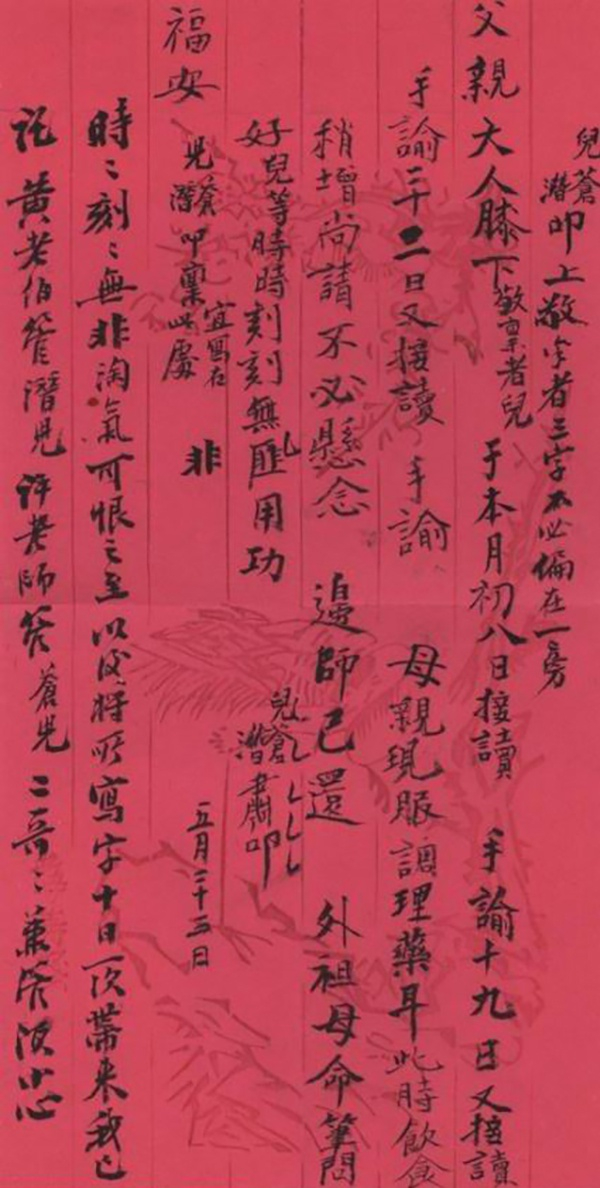 兒蒼潛叩上敬字者三字不必偏在一旁
父親大人膝下敬稟者兒于本月初八日接讀
手諭十九日又接讀
手諭二十二日又接讀
手諭
母親現服調理藥耳此時飲食
稍增尚請不必懸念
邊師已還
外祖母命筆問
好兒等時時刻刻無匪用功
兒蒼潛肅叩
福安
兒蒼潛叩稟此處
宜寫在
非
五月二十五日
時々刻々無非淘氣可恨之至以後將所寫字十日一次帶來我已
託黃老伯管潛兒許老師管蒼兒二哥々兼管須小心